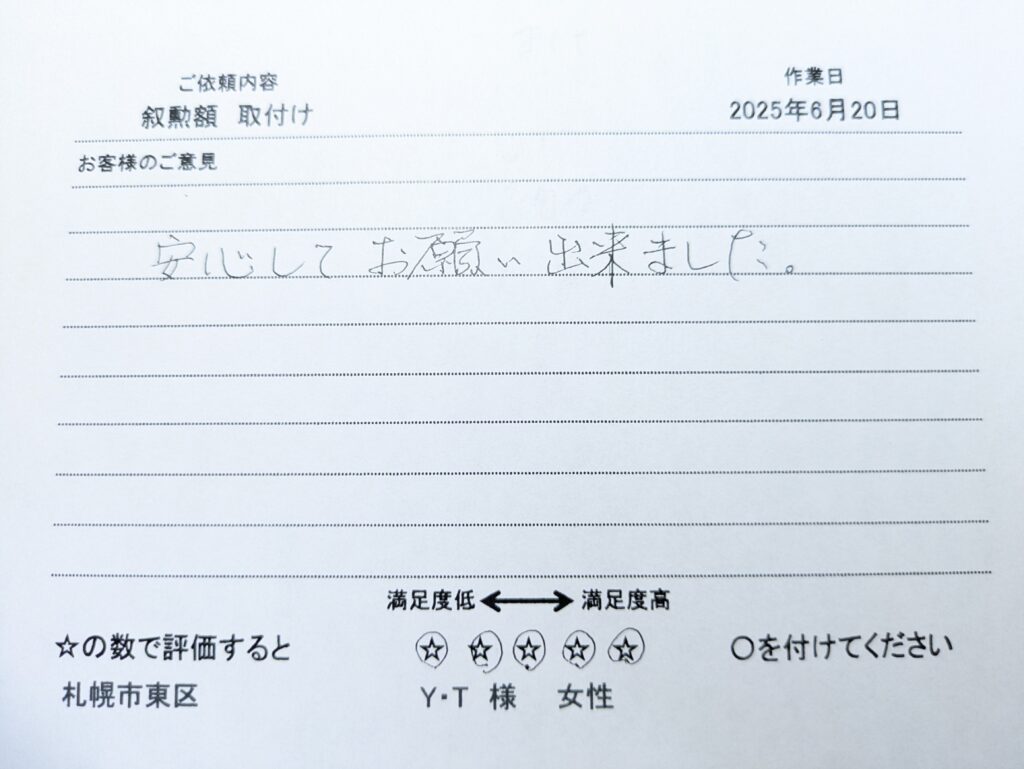 ご依頼内容
作業日
叙勲額 取付け
2025年6月20日
お客様のご意見
安心してお願い出来ました。
満足度低 ⟷ 満足度高
☆の数で評価すると ☆ ☆ ☆ ☆ ☆ 〇を付けてください
札幌市東区 Y・T 様 女性